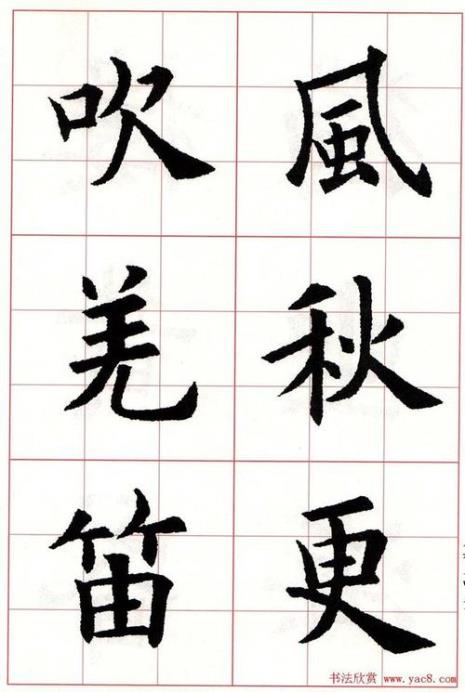 風秋更
吹羌笛
书法欣赏 www.yac8.com